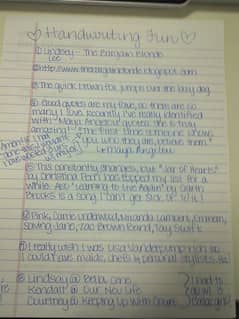 ♡ Handwriting Fun ♡
① Lindsey - The Bargain Blonde
Lee
② http://www.thebargainblonde.blogspot.com
③ The quick brown fox jumps over the lazy dog
④ Good quotes are my fave, so there are so
many I love. recently I've really identified
with "Maya Angelou" quotes. She is truly
amazing! "The first time someone shows
you who they are, believe them."
- Maya Angelou
⑤ This constantly changes, but "Jar of Hearts"
by Christina Perri has topped my list for a
while. Also "Learning to Live Again" by Garth
Brooks is a song I can't get sick of
⑥ Pink, Carrie Underwood, Miranda Lambert, Eminem,
Saving Jane, Zac Brown Band, Taylor Swift
⑦ I really wish I was Lisa Vanderpump rich so
I could have maids, chefs & personal stylists
⑧ Lindsay @
Kendall @ Our New Life
Courtney @ Keeping Up with